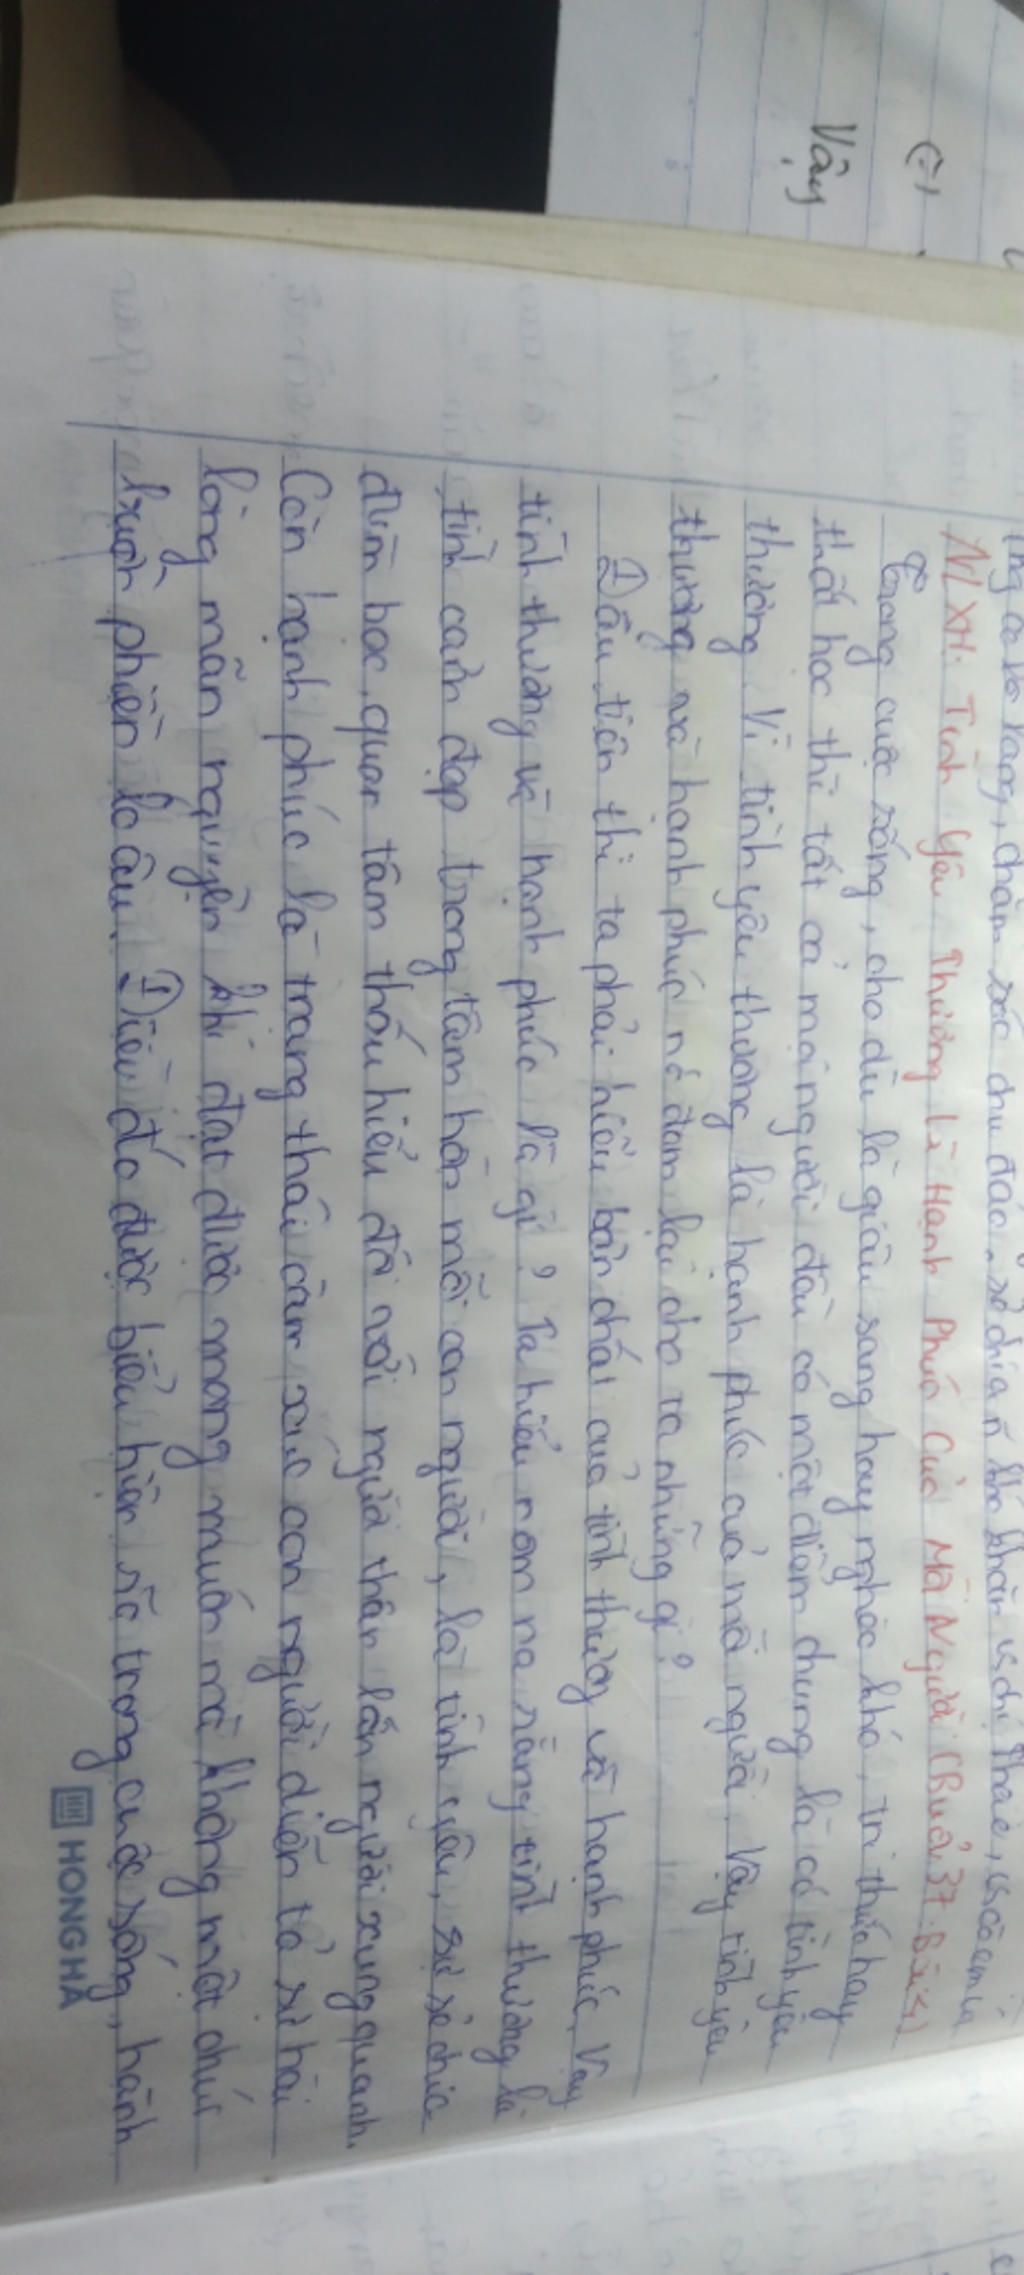 Vậy
chăm sóc chu đáo, sẻ chia n khó khăn vs chị
NLXH. Tình Yêu Thương Là Hạnh Phúc Của Mỗi Người (Buổi 37. Bài
Trong cuộc sống, cho dù là giàu sang hay nghèo khó, tri thức hay
thất học thì tất cả mọi người đều có một điểm chung là có tình yêu
thương. Vì tình yêu thương là hạnh phúc của mỗi người. Vậy tình yêu
thương và hạnh phúc nó đem lại cho ta những gì?
Đầu tiên thì ta phải hiểu bản chất của tình thương và hạnh phúc. Vậy
tình thương và hạnh phúc là gì? Ta hiểu nôm na rằng tình thương là
tình cảm đẹp trong tâm hồn mỗi con người, là tình yêu, sự sẻ chia
đùm bọc, quan tâm thấu hiểu đối với người thân lẫn người xung quanh.
Còn hạnh phúc là trạng thái cảm xúc con người diễn tả sự hài
lòng mãn nguyện khi đạt được mong muốn mà không một chút
buồn phiền lo âu. Điều đó được biểu hiện rõ trong cuộc sống, hành
HONG HÀ